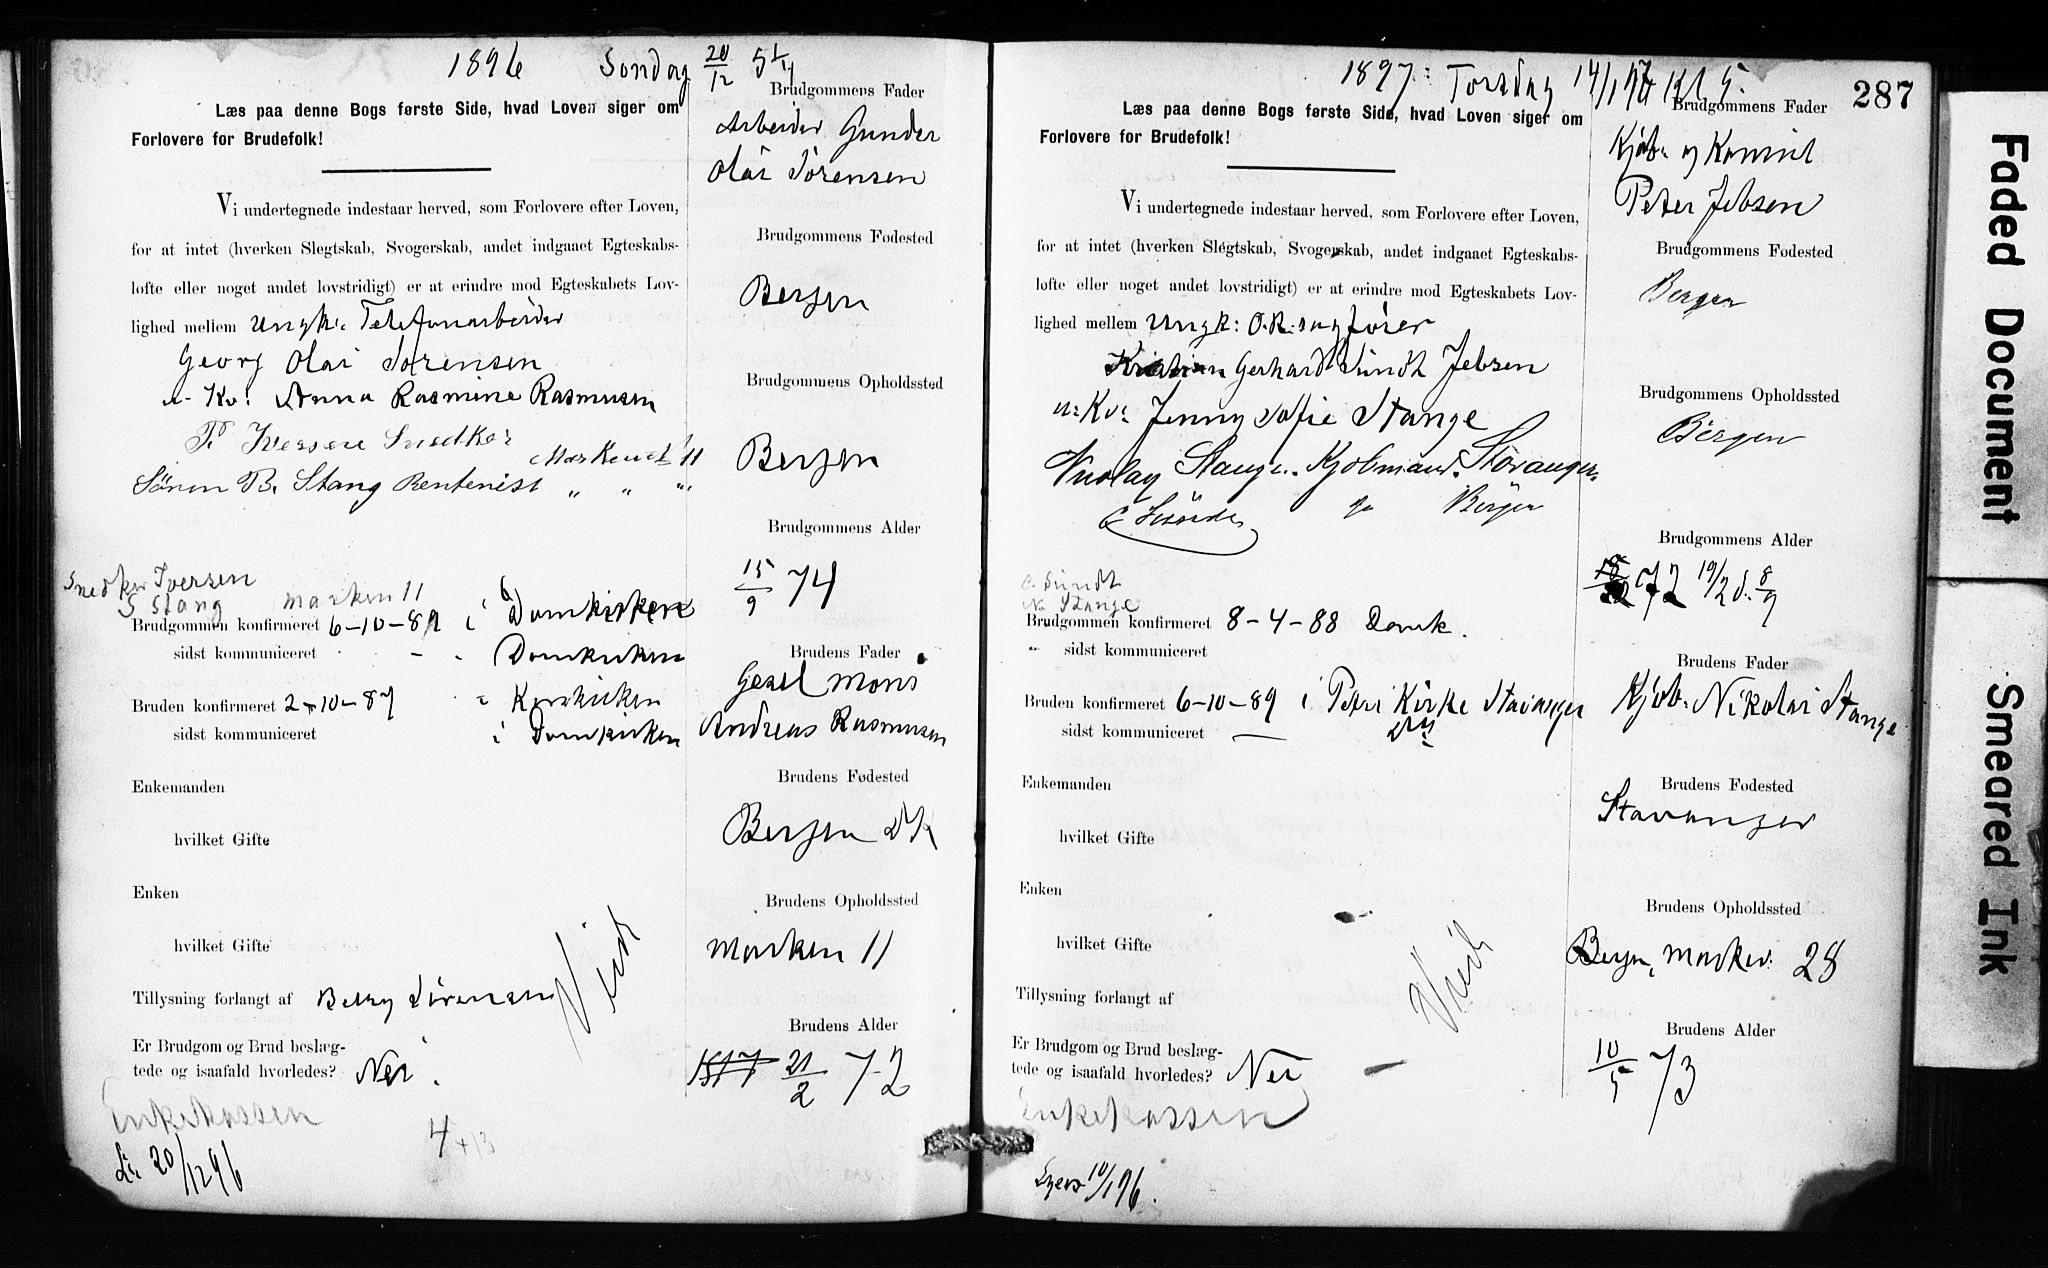 1896 Søndag 20/12 5 1/4
Læs paa denne Bogs første Side, hvad Loven siger om
Forlovere for Brudefolk!
Vi undertegnede indestaar herved, som Forlovere efter Loven,
for at intet (hverken Slegtskab, Svogerskab, andet indgaaet Egteskabs-
løfte eller noget andet lovstridigt) er at erindre mod Egteskabets Lov-
lighed mellem Ungk: Telefonarbeider
Georg Olai Sørensen
Kv: Anna Rasmine Rasmussen
P. Iversen Snedker
Markevei 11
Sören B. Stang Rentenist " " "
Snedker Iversen
S Stang marken 11
Brudgommen konfirmeret 6-10-89 i Domkirken
sidst kommuniceret - Domkirken
Bruden konfirmeret 2-10-87 Korskirken
sidst kommuniceret i Domkirken
Enkemanden
hvilket Gifte
Enken
hvilket Gifte
Tillysning forlangt af Betzy Sørensen
Er Brudgom og Brud beslæg-
tede og isaafald hvorledes? Nei.
Enkekassen
4 +13
20/12 96
Brudgommens Fader
Arbeider Gunder
Olai Sørensen
Brudgommens Fødested
Bergen
Brudgommens Opholdssted
Bergen
Brudgommens Alder
15/9 74
Brudens Fader
Gesel Mons
Andreas Rasmussen
Brudens Fødested
Bergen DK
Brudens Opholdssted
Marken 11
Brudens Alder
21/2 72
1897: Torsdag 14/1 97 kl 5.
287
Læs paa denne Bogs første Side, hvad Loven siger om
Forlovere for Brudefolk!
Vi undertegnede indestaar herved, som Forlovere efter Loven,
for at intet (hverken Slegtskab, Svogerskab, andet indgaaet Egteskabs-
løfte eller noget andet lovstridigt) er at erindre mod Egteskabets Lov-
lighed mellem Ungk: O.R.sagfører
Kristian Gerhard Sundt Jebsen
Kv: Jenny Sofie Stange
Nicolay Stange. Kjøbmand. Stavanger.
C Sundt Bergen
C. Sundt
N. Stange
Brudgommen konfirmeret 8-4-88 Domk.
" sidst kommuniceret
Bruden konfirmeret 6-10-89 i Petri Kirke Stavanger
sidst kommuniceret —
Enkemanden
hvilket Gifte
Enken
hvilket Gifte
Tillysning forlangt af
Er Brudgom og Brud beslæg-
tede og isaafald hvorledes? Nei
Enkekassen
10/1 96.
Brudgommens Fader
Kjøb. og Konsul
Peter Jebsen
Brudgommens Fødested
Bergen
Brudgommens Opholdssted
Bergen
Brudgommens Alder
72 19/2 d. 8/9
Brudens Fader
Kjøb. Nikolai Stange
Brudens Fødested
Stavanger
Brudens Opholdssted
Bergen, Marken 28
Brudens Alder
10/5 73
Faded Document
Smeared Ink